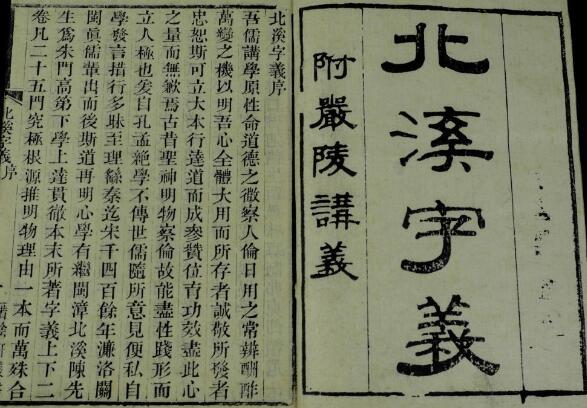 北溪字義
附嚴陵講義
北溪字義序
吾儒講學原性命道德之徵察人倫日用之常辨酬酢
萬變之機以明吾心全體大用而所存者誠敬所發者
忠恕斯可立大本行達道而成參贊位育功效盡此心
之量而無歉焉古昔聖神明物察倫故能盡性踐形而
立人極也爰自孔孟絕學不傳世儒隨所意見便私自
學發言措行多昧至理繇秦迄宋千四百餘年濂洛關
閩眞儒輩出而後斯道再明心學有繼閩漳北溪陳先
生爲朱門高第下學上達貫徹本末所著字義上下二
卷凡二十五門究極根源推明物理由一本而萬殊合
北溪字義序